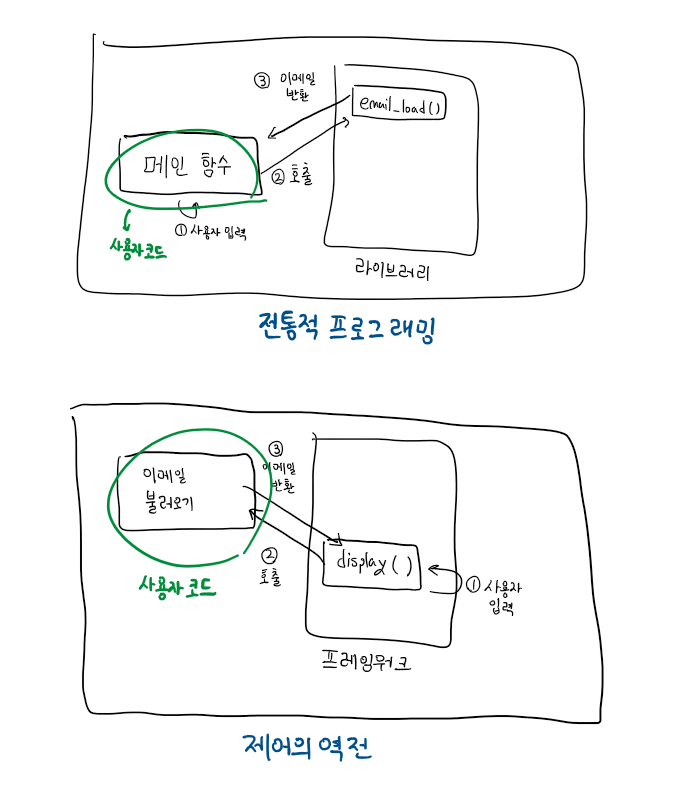 ③ 이메일
반환
email_load()
메인 함수
② 호출
① 사용자 입력
사용자코드
라이브러리
전통적 프로그래밍
③
이메일
반환
이메일
불러오기
display()
②
호출
① 사용자
입력
사용자코드
프레임워크
제어의 역전